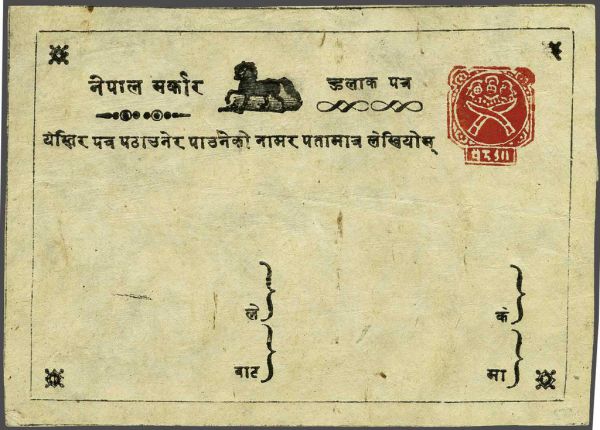 नेपाल सर्कार
हुलाक पत्र
येस्तिर पत्र पठाउनेर पाउनेको नामर पतामात्र लेखियोस्
ले
कं
बाट
मा